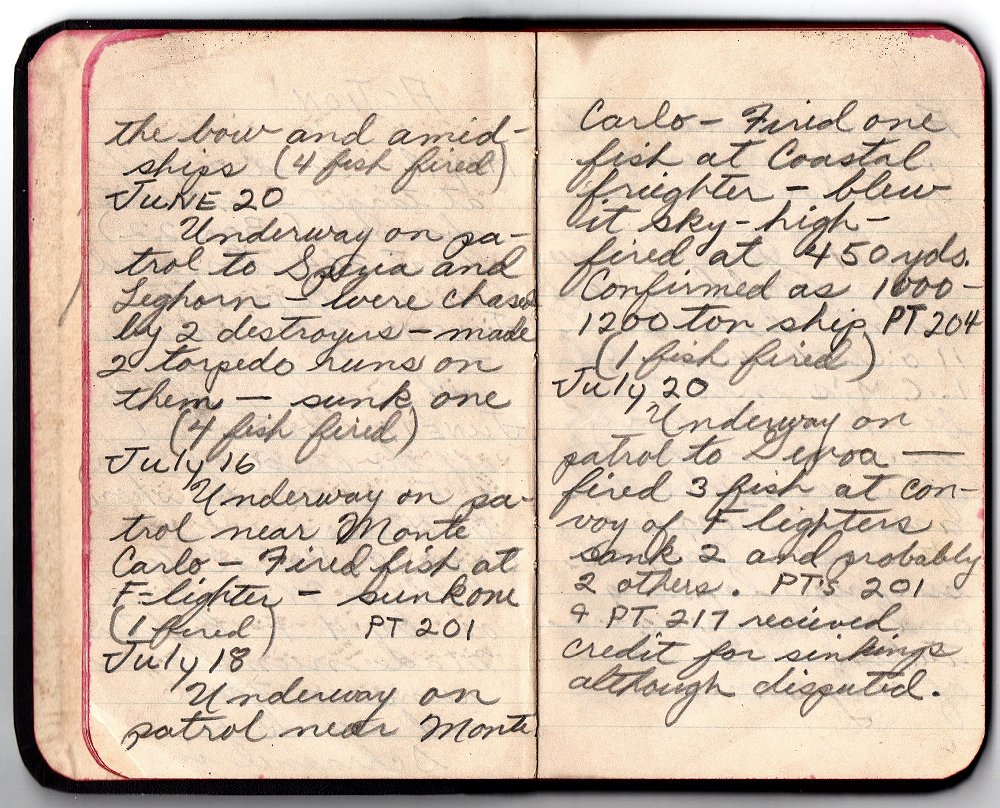 the bow and amid-
ships (4 fish fired)
JUNE 20
Underway on pa-
trol to Spezia and
Leghorn - were chased
by 2 destroyers - made
2 torpedo runs on
them - sunk one
(4 fish fired)
July 16
Underway on pa-
trol near Monte
Carlo - Fired fish at
F-lighter - sunk one
(1 fired) PT 201
July 18
Underway on
patrol near Monte
Carlo - Fired one
fish at Coastal
frieghter - blew
it sky-high -
fired at 450 yds.
Confirmed as 1000-
1200 ton ship PT 204
(1 fish fired)
July 20
Underway on
patrol to Genoa —
fired 3 fish at con-
voy of F lighters
sank 2 and probably
2 others. PT'S 201
& PT 217 recieved
credit for sinkings
although disputed.